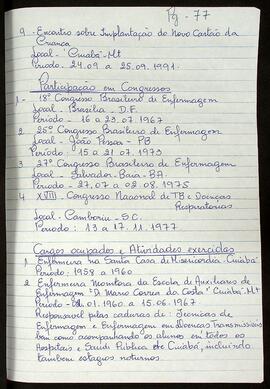 Pg - 77
9 - Encontro sobre Implantação do Novo Cartão da
Criança
Local - Cuiabá - Mt
Período - 24.09 a 25.09.1991.
Participação em Congressos
1 - 18º Congresso Brasileiro de Enfermagem
Local - Brasília - D.F.
Período - 16 a 23.07.1967
2 - 25º Congresso Brasileiro de Enfermagem
Local - João Pessoa - PB
Período - 15 a 21.07.1973
3 - 27º Congresso Brasileiro de Enfermagem
Local - Salvador - Baia - BA.
Período - 27.07 a 02.08.1975
4 XVIII - Congresso Nacional de TB e Doenças
Respiratorias
Local - Camboriu - S.C.
Período : 13 a 17.11.1977
Cargos ocupados e Atividades exercidas
1 Enfermeira na Santa Casa de Misericordia - Cuiabá
Período : 1958 a 1960
2 Enfermeira Monitora da Escola de Auxiliares de
Enfermagem "Dr Mario Correa da Costa" Cuiabá - Mt
Período - 01.1960 a 15.06.1967
Responsavel pelas cadeiras de : Tecnicas de
Enfermagem e Enfermagem em Doencas Transmissiveis
bem como acompanhando os alunos em todos os
Hospitais e Saúde Publica de Cuiabá, incluindo
tambem estagios noturnos.